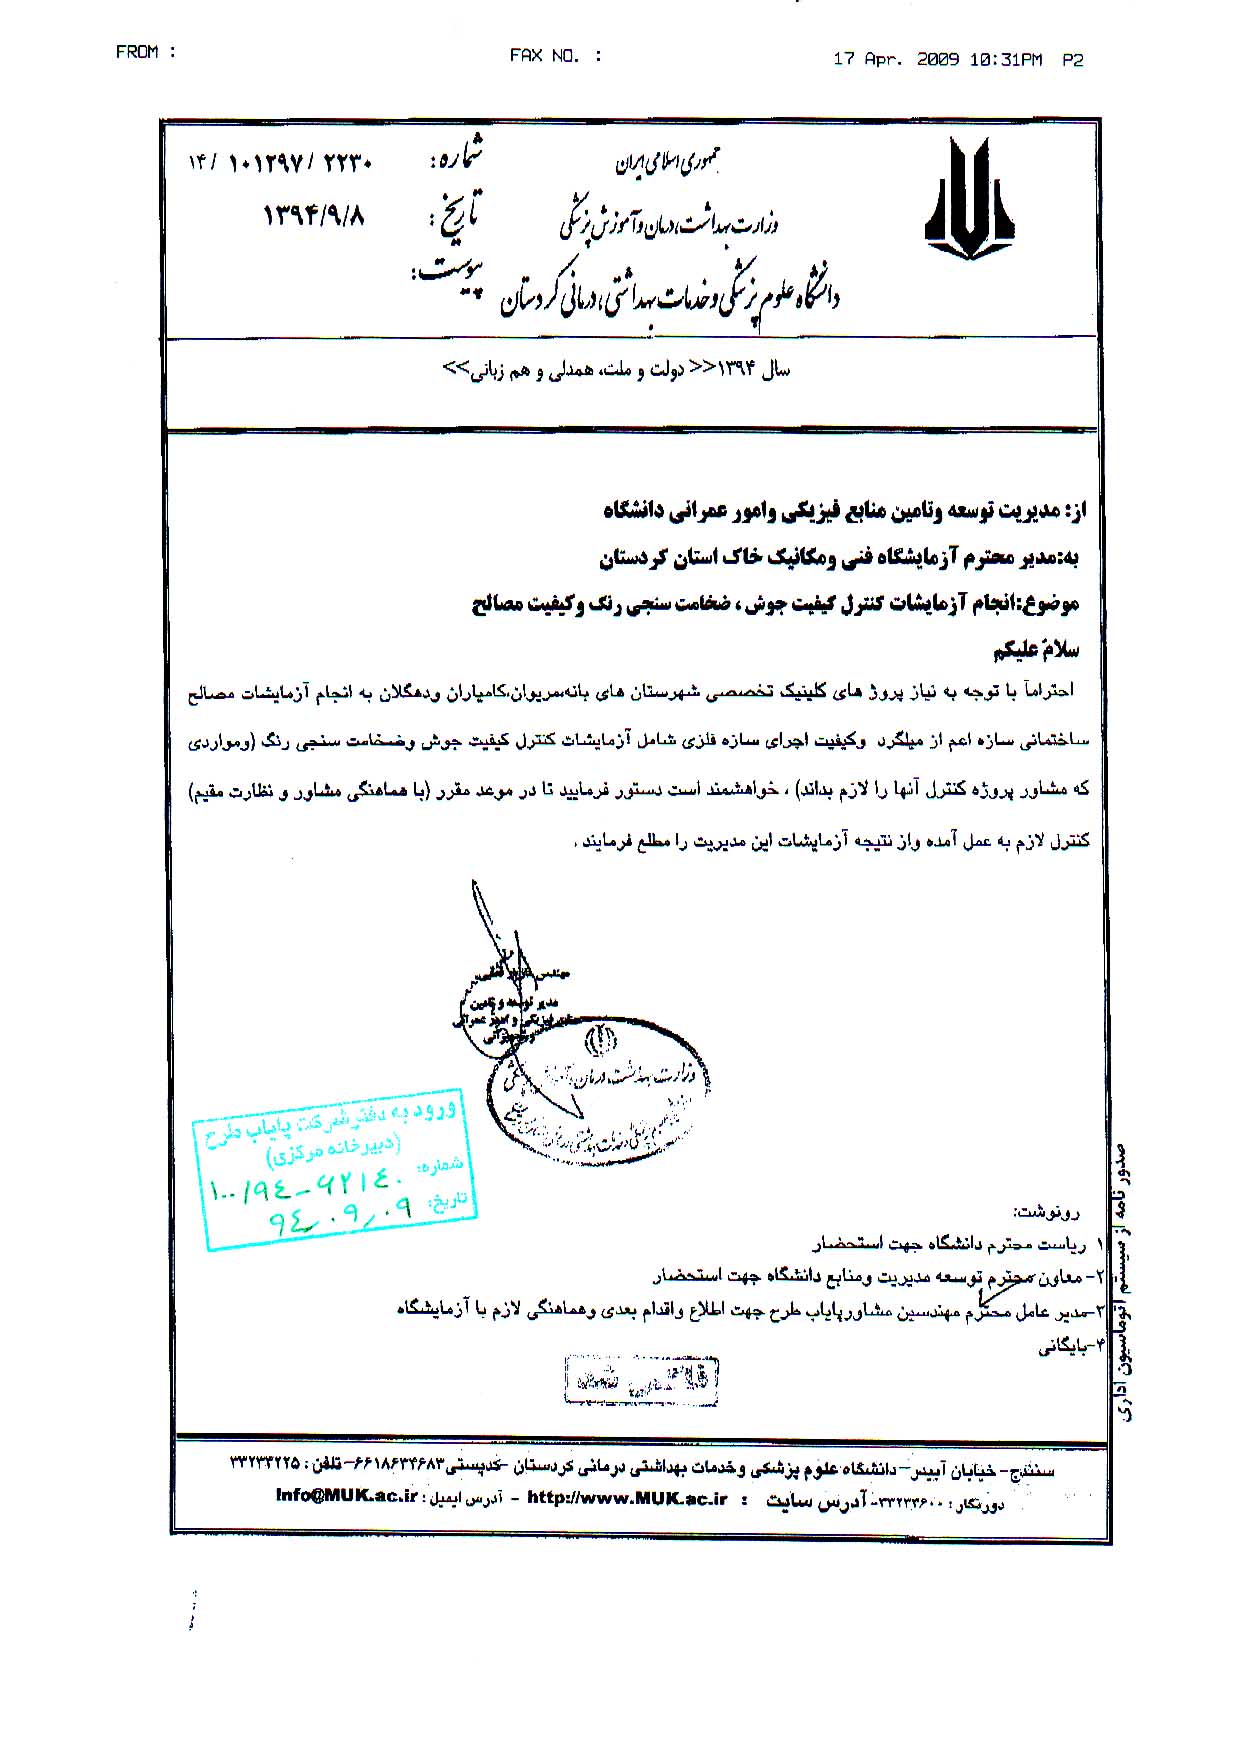 FROM :
FAX NO. :
17 Apr. 2009 10:31PM P2
جمهوری اسلامی ایران
وزارت بهداشت، درمان و آموزش پزشکی
دانشگاه علوم پزشکی و خدمات بهداشتی، درمانی کردستان
شماره: ۱۴/ ۱۰۱۲۹۷/ ۲۲۳۰
تاریخ: ۱۳۹۴/۹/۸
پیوست:
سال ۱۳۹۴<< دولت و ملت، همدلی و هم زبانی>>
از: مدیریت توسعه وتامین منابع فیزیکی وامور عمرانی دانشگاه
به:مدیر محترم آزمایشگاه فنی ومکانیک خاک استان کردستان
موضوع:انجام آزمایشات کنترل کیفیت جوش ، ضخامت سنجی رنگ وکیفیت مصالح
سلام علیکم
احتراماً با توجه به نیاز پروژ های کلینیک تخصصی شهرستان های بانه،مریوان،کامیاران ودهگلان به انجام آزمایشات مصالح
ساختمانی سازه اعم از میلگرد وکیفیت اجرای سازه فلزی شامل آزمایشات کنترل کیفیت جوش وضخامت سنجی رنگ (ومواردی
که مشاور پروژه کنترل آنها را لازم بداند) ، خواهشمند است دستور فرمایید تا در موعد مقرر (با هماهنگی مشاور و نظارت مقیم)
کنترل لازم به عمل آمده واز نتیجه آزمایشات این مدیریت را مطلع فرمایند .
مهندس
مدیر توسعه و تامین
منابع فیزیکی و امور عمرانی
وزارت بهداشت، درمان و آموزش پزشکی
ورود به دفتر شرکت پایاب طرح
(دبیرخانه مرکزی)
شماره: ۱۰۰/۹٤-۶۲۱٤۰
تاریخ: ۹٤/۰۹/۰۹
رونوشت:
۱ ریاست محترم دانشگاه جهت استحضار
۲-معاون محترم توسعه مدیریت ومنابع دانشگاه جهت استحضار
۳-مدیر عامل محترم مهندسین مشاور پایاب طرح جهت اطلاع واقدام بعدی وهماهنگی لازم با آزمایشگاه
۴-بایگانی
صدور نامه از سیستم اتوماسیون اداری
سنندج- خیابان آبیدر- دانشگاه علوم پزشکی وخدمات بهداشتی درمانی کردستان -کدپستی۶۶۱۸۶۳۴۶۸۳-تلفن: ۳۳۲۳۳۲۲۵
دورنگار: ۳۳۲۳۳۶۰۰-آدرس سایت : http://www.MUK.ac.ir - آدرس ایمیل: Info@MUK.ac.ir